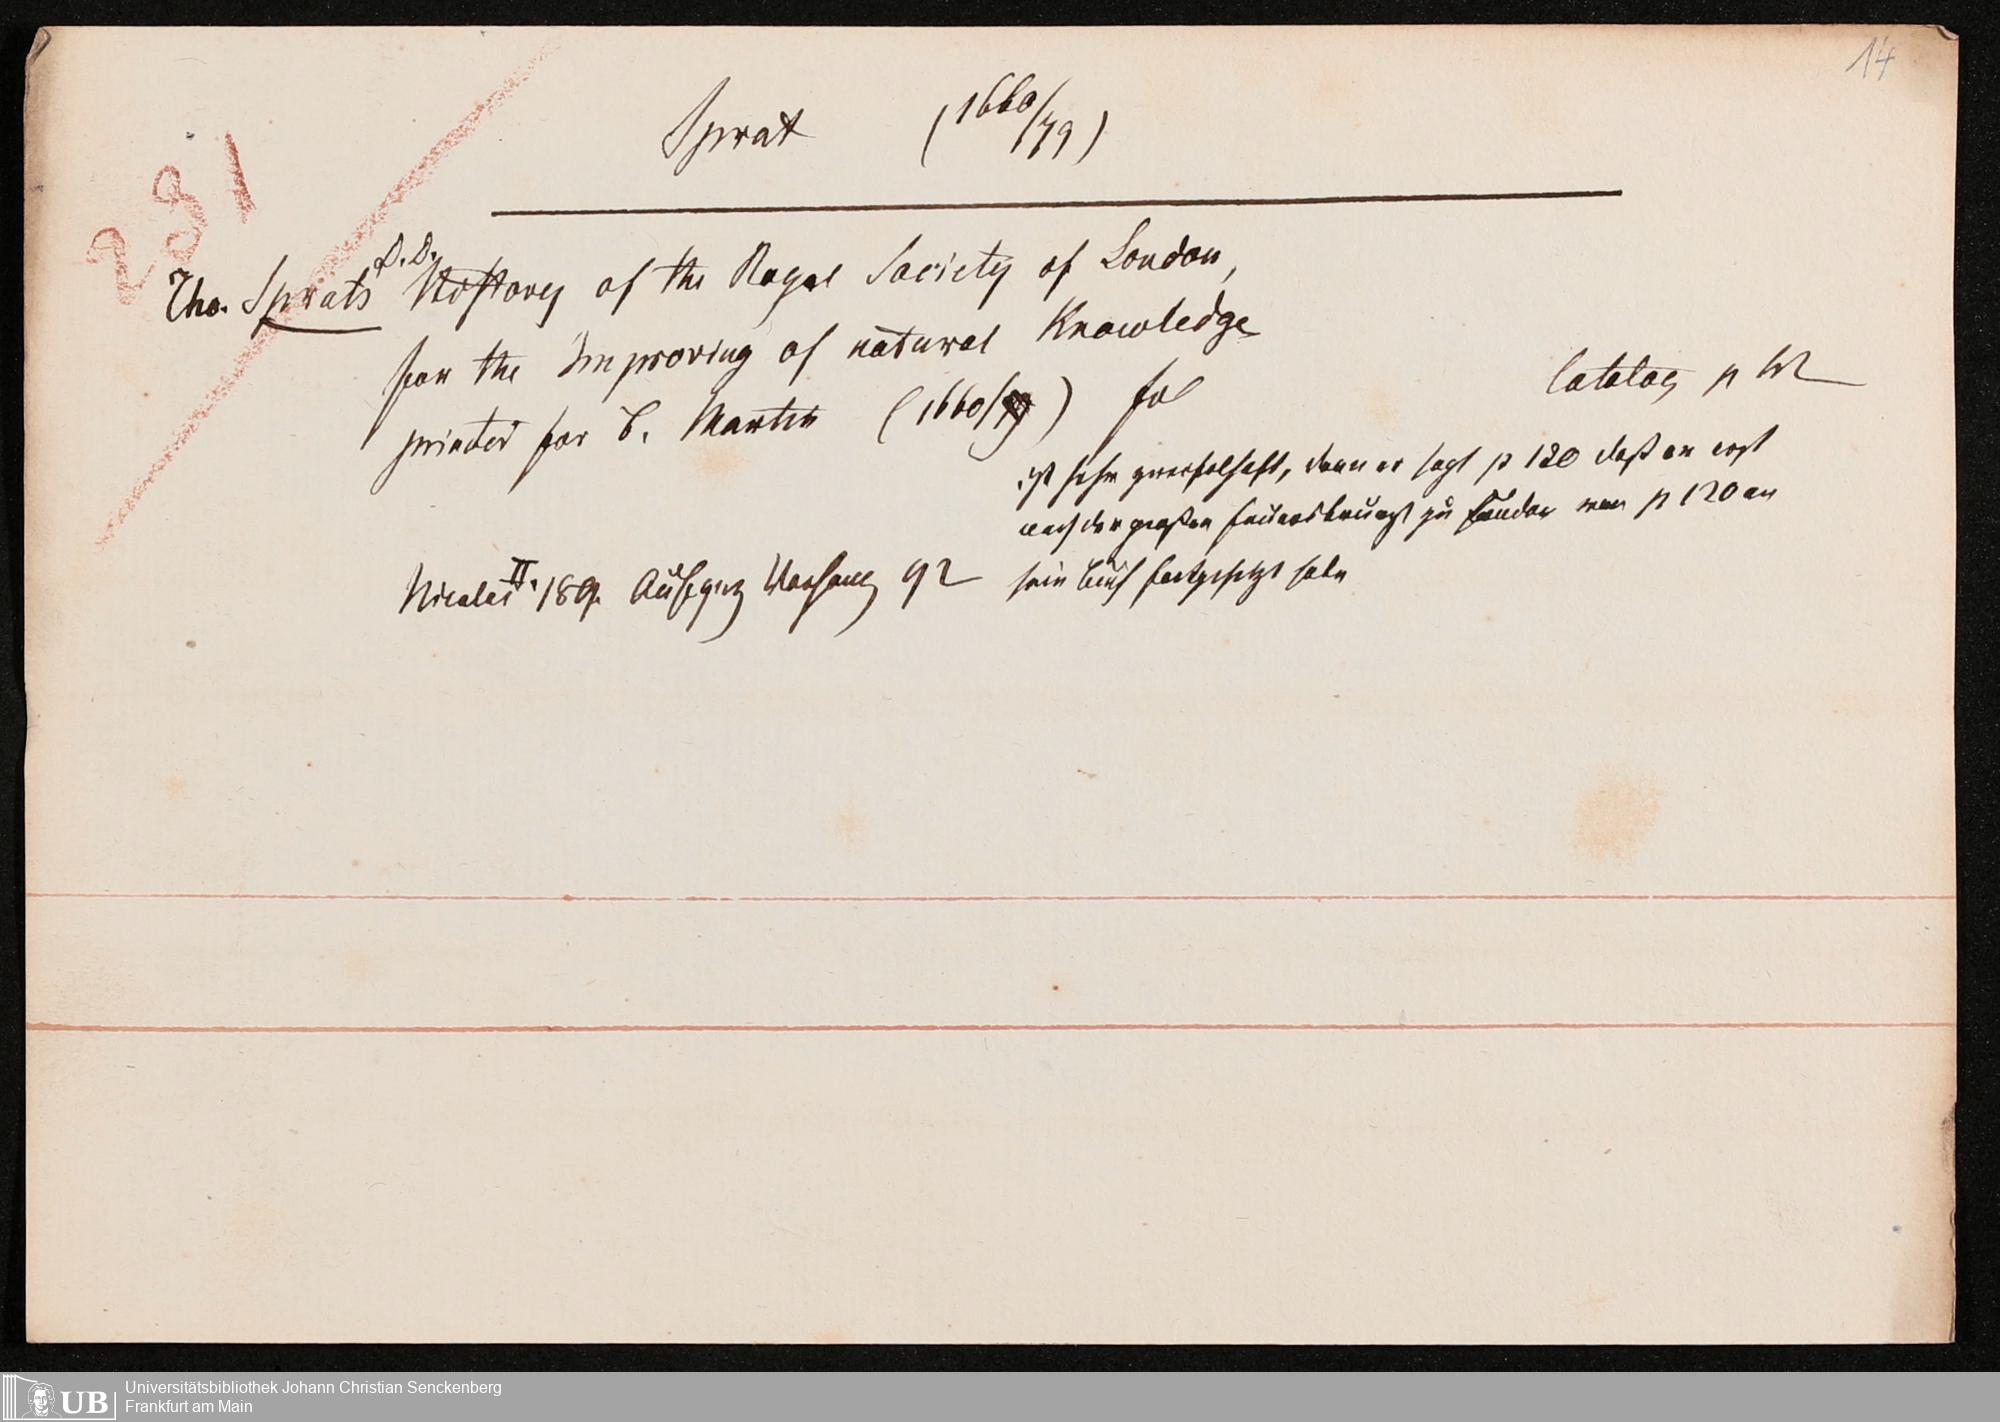 14
Sprat (1660/79)
231
Tho. Sprats D.D. History of the Royal Society of London,
for the Improving of natural Knowledge
printed for C. Martin (1660/79) fol
Catalog p
ist sehr zweifelhaft, denn er sagt p 120 daß er erst
nach der großen Feuersbrunst zu London von p 120 an
sein Buch fortgesetzt habe
Nicolai II. 189. Anhang 92
Universitätsbibliothek Johann Christian Senckenberg
Frankfurt am Main
UB